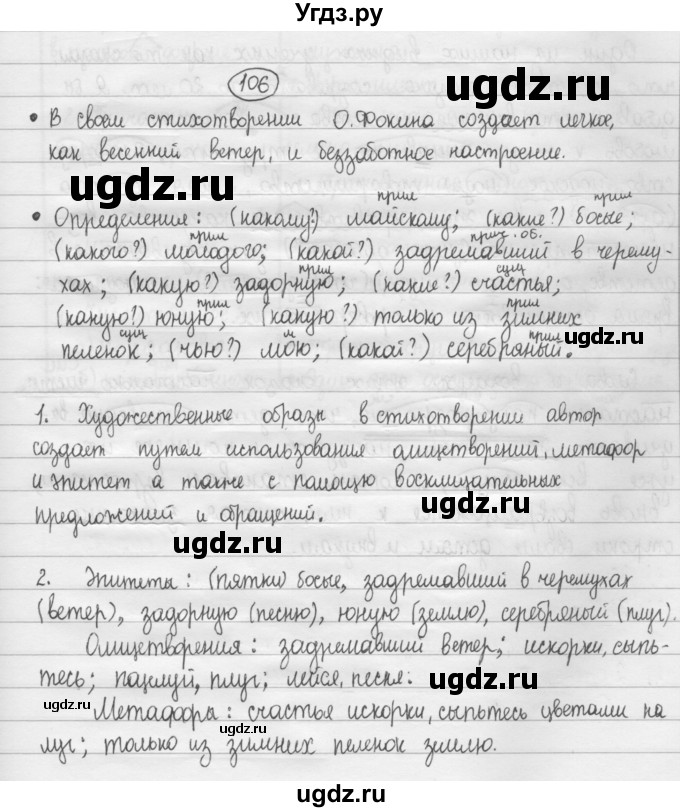 Угдз.ру
106
ugdz.ru
• В своем стихотворении О.Фокина создает легкое,
как весенний ветер, и беззаботное настроение.
ugdz.ru
прил прил
• Определения: (какому?) майскому; (какие?) босые;
прил прич. об.
(какого?) молодого; (какой?) задремавший в черему-
прил сущ
хах; (какую?) задорную; (какие?) счастья;
прил прил
(какую?) юную; (какую?) только из зимних
ugdz.ru
сущ м прил
пеленок; (чью?) мою; (какой?) серебряный.
1. Художественные образы в стихотворении автор
создает путем использования олицетворений, метафор
и эпитет а также с помощью восклицательных
ugdz.ru
предложений и обращений.
ugdz.ru
2. Эпитеты: (пятки) босые, задремавший в черемухах
(ветер), задорную (песню), юную (землю), серебряный (плуг).
Олицетворения: задремавший ветер; искорки, сыпь-
тесь; поцелуй, плуг; лейся, песня.
ugdz.ru
ugdz.ru
Метафоры: счастья искорки, сыпьтесь цветами на
луг; только из зимних пеленок землю.
ugdz.ru
Угдз.ру